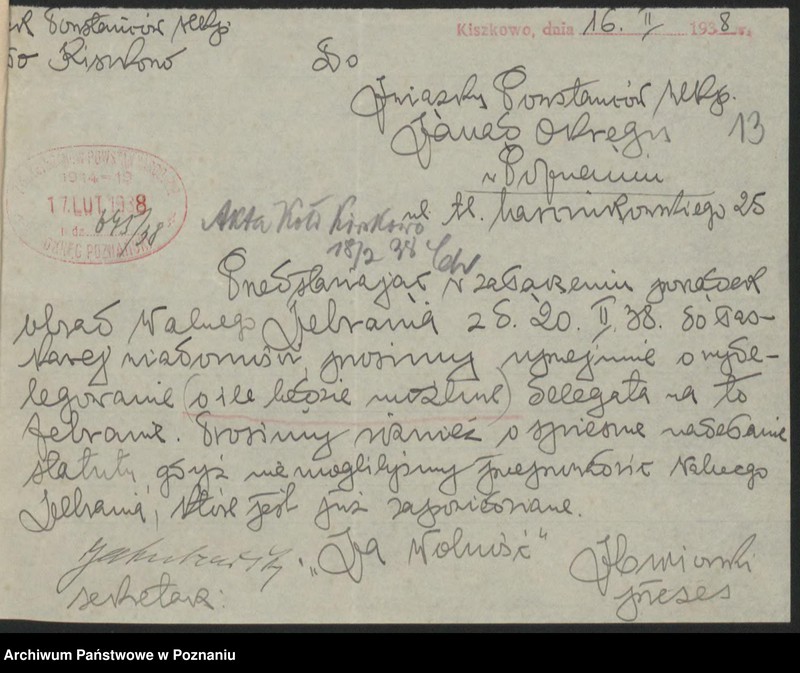 Powstańców Wlkp.
Kiszkowo
Kiszkowo, dnia 16. II 1938 r.
Do
Związku Powstańców Wlkp.
Zarząd Okręgu
13
w Poznaniu
ul. Al. Marcinkowskiego 25
17 LUT. 1938
645/38
OKRĘG POZNAŃSKI
Akta Koło Kiszkowo
18/2 38
Przedstawiając w załączeniu porządek
obrad Walnego Zebrania z d. 20. II. 38. do łas-
kawej wiadomości, prosimy uprzejmie o wyde-
legowanie (o ile będzie możliwe) delegata na to
zebranie. Prosimy również o spieszne nadesłanie
statutu, gdyż nie moglibyśmy przeprowadzić Walnego
Zebrania, które jest już zapowiedziane.
"Za Wolność"
sekretarz:
prezes
Archiwum Państwowe w Poznaniu